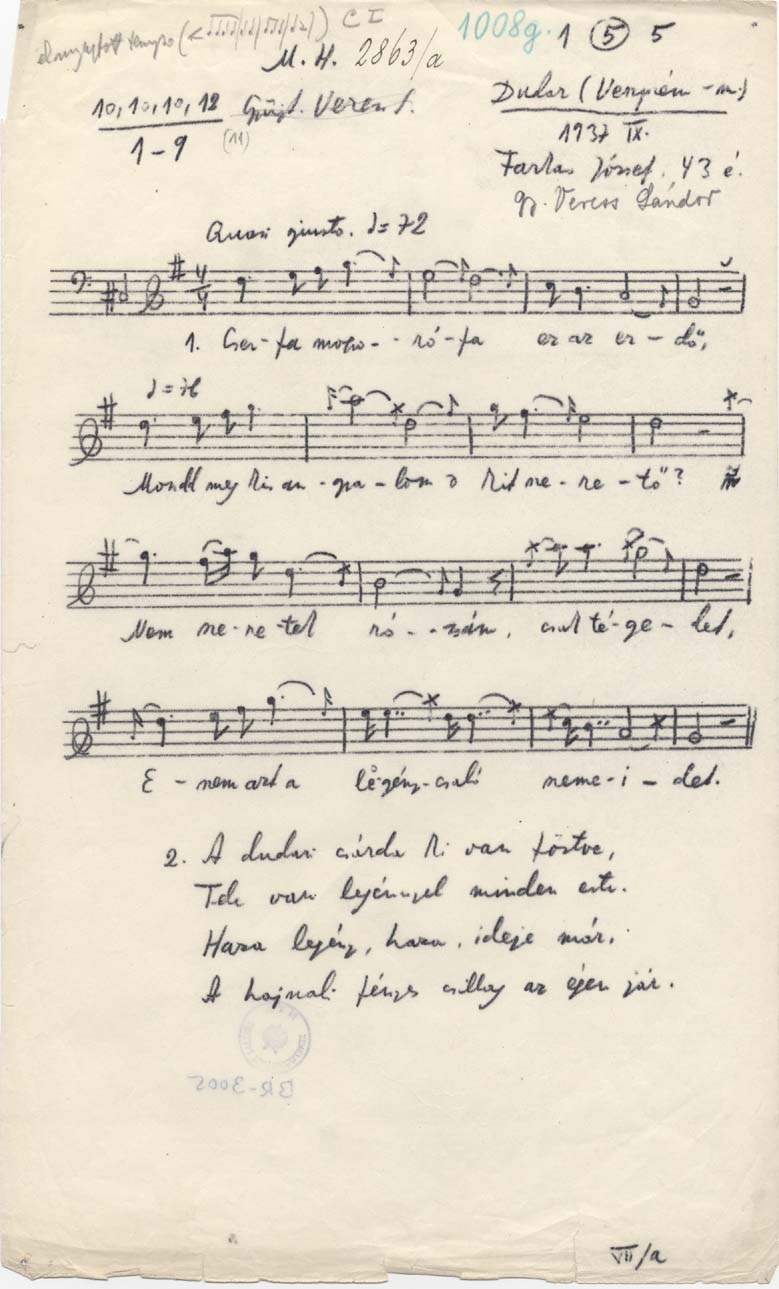 elnyujtott tempo C I
1008g. 1 5 5
M. H. 2863/a
10, 10, 10, 12 Veress.
1-9 (11)
Dudar (Veszprém-m.)
1937 IX.
Farkas József. 43 é.
gy. Veress Sándor
Quasi giusto. = 72
1. Cser-fa mogyo-ró-fa ez az er-dő,
= 76
Mondd meg kis an-gya-lom a kit sze-re-tő?
Nem sze-re-tek ró-zsám, csak té-ge-led,
E-nem azt a legény-csaló szeme-i-det.
2. A dudari csárda ki van föstve,
Tele van legényekkel minden este.
Haza legény, haza, ideje már,
A hajnali fényes csillag az égen jár.
BR-3002
VII/a